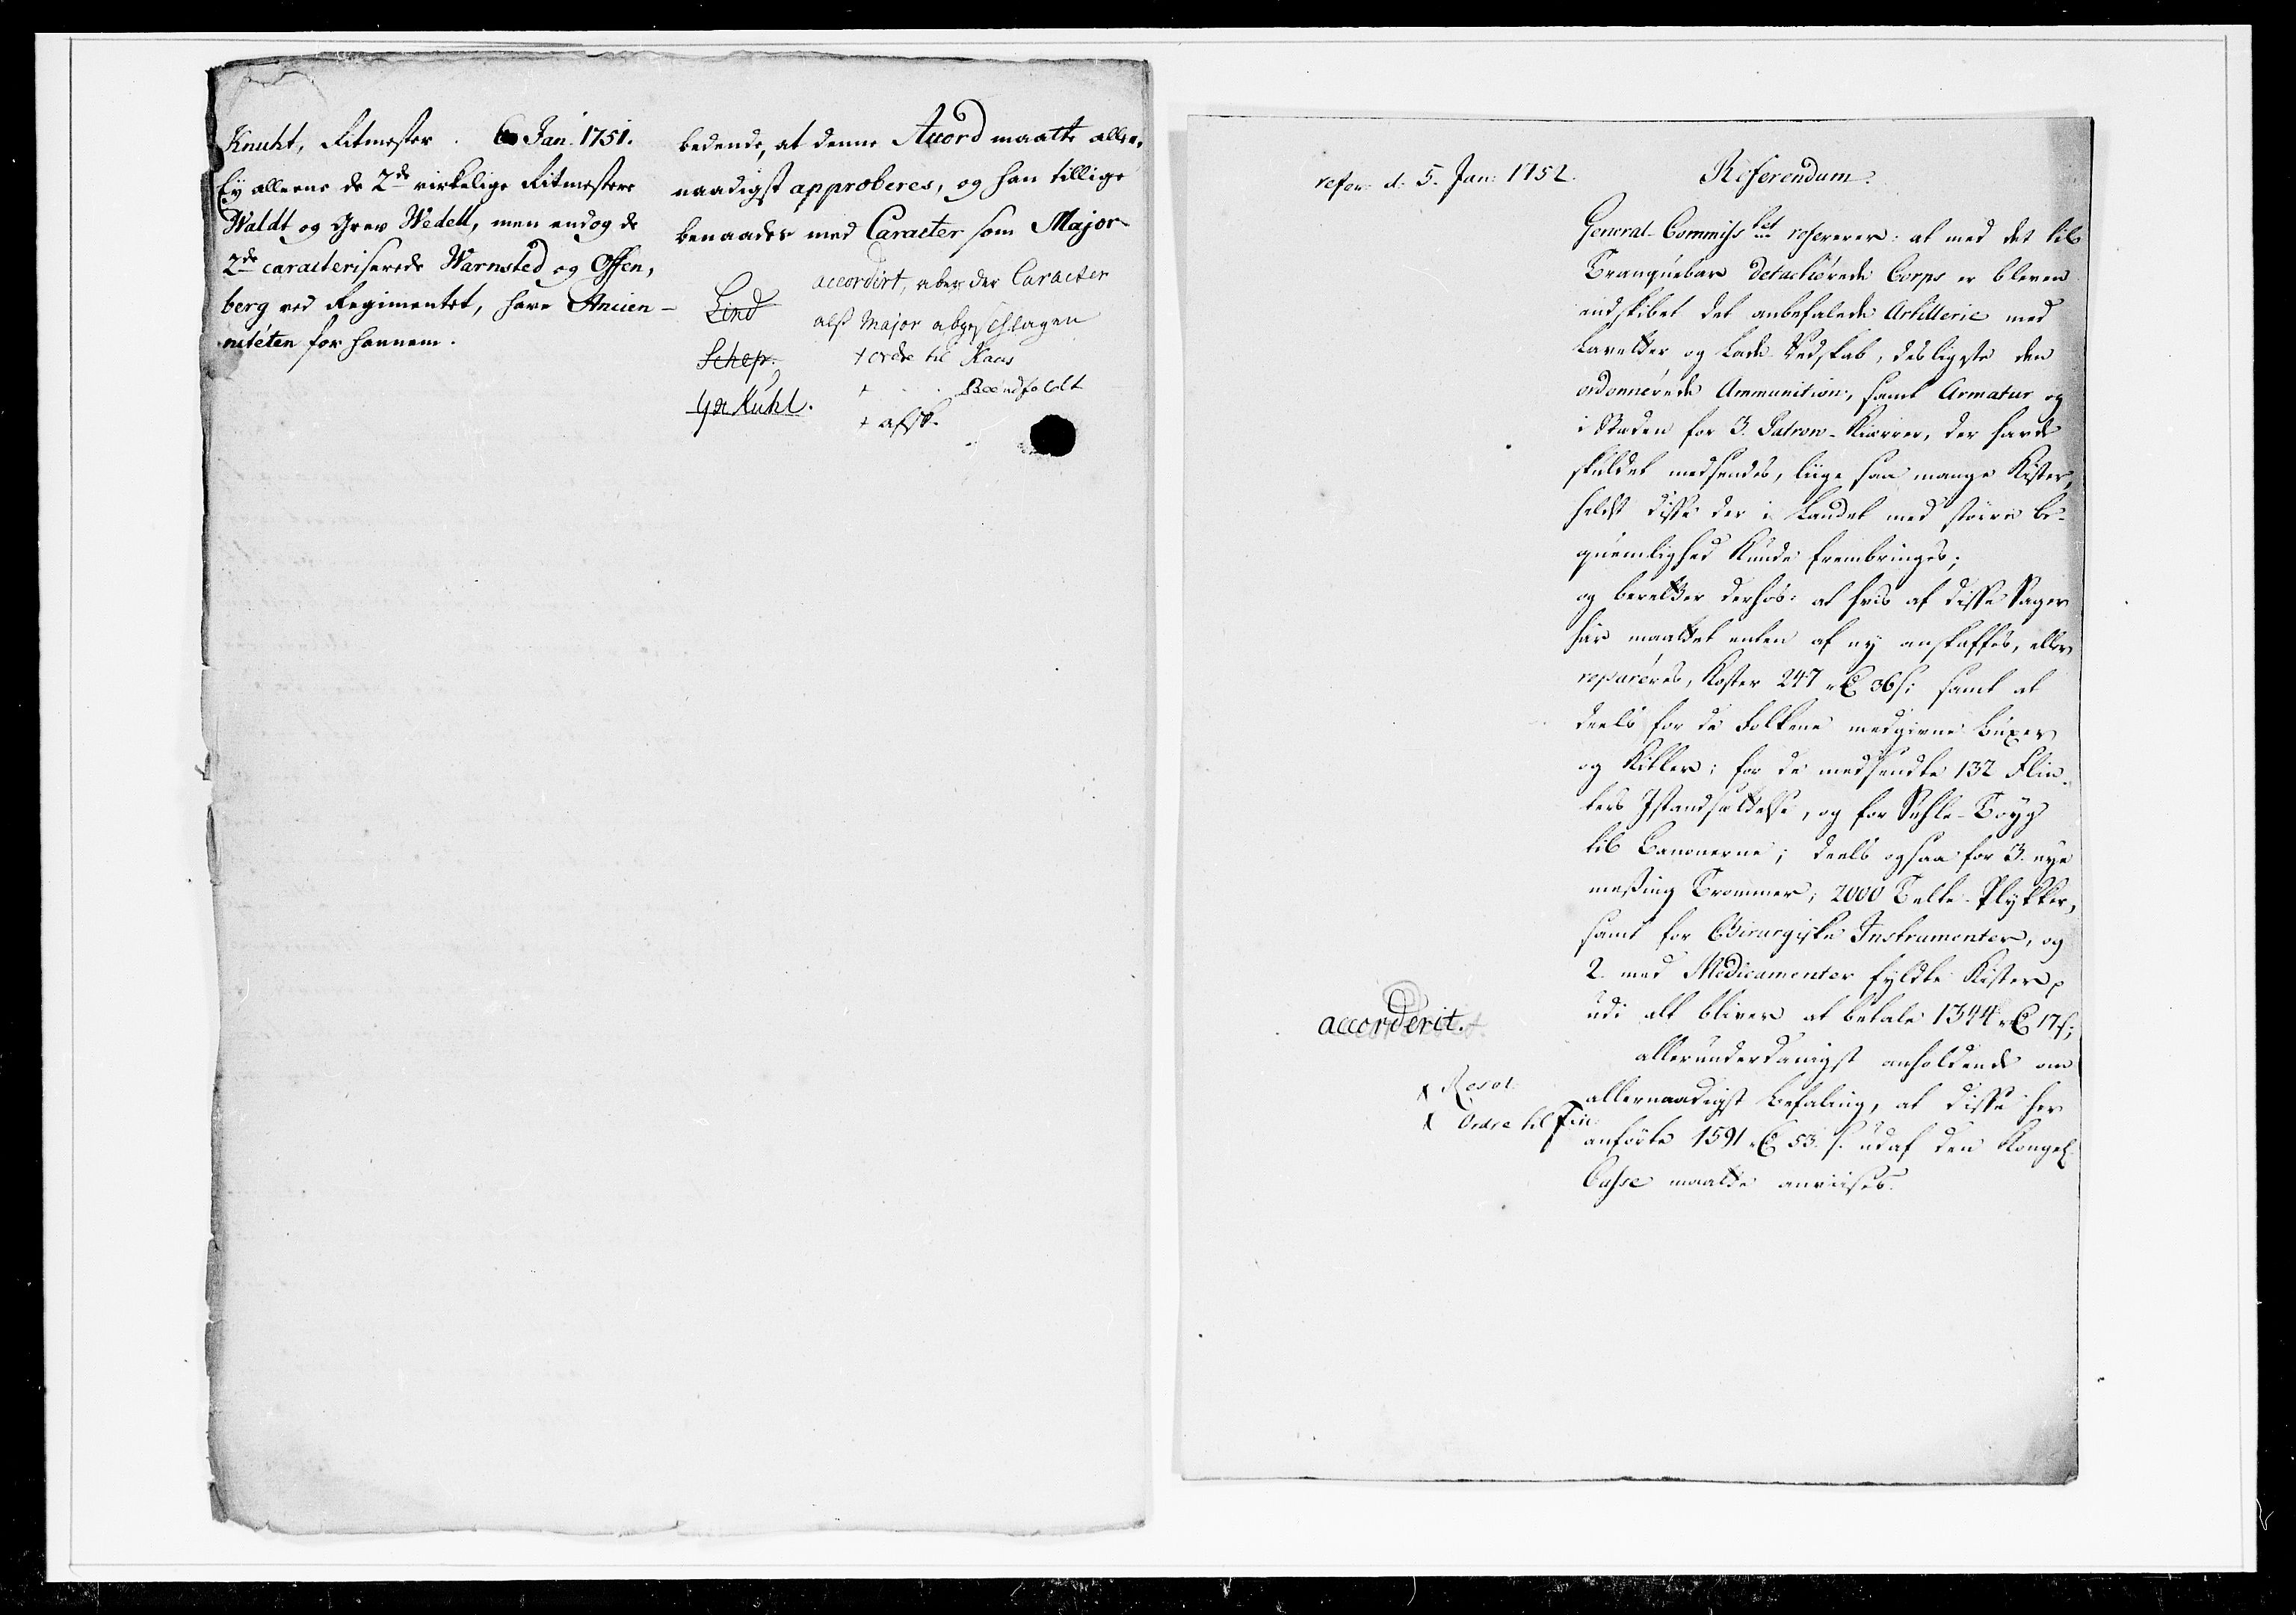 Knuht, Ritmester. 6 Jan. 1751.
Ey alleene de 2de virkelige Ritmestere
Waldt og Grev Wedell, men endog de
2de caracteriserede Warnsted og Offen,
berg ved Regimentet, have Ancien-
niteten for hannem.
bedende, at denne Accord maatte aller,
naadigst approberes, og han tillige
benaades med Caracter som Major
accordirt, aber der Caracter
alss Major abgeschlagen
Lind
Schep.
+ ordre til Kaas
+
+ afsk.
refer. d. 5. Jan: 1752.
Referendum.
General-Commiss tet refererer: at med det til
Tranquebar detachérede Corps er bleven
indskibet det anbefalede Artillerie med
Lavetter og Lade-Redskab, desligeste den
ordonnerede Ammunition, samt Armatur og
i Steden for 3. Patron-Kiærrer, der havde
skuldet medsendes, liige saa mange Kister,
helst disse der i Landet med større be-
quemlighed kunde frembringes;
og beretter derhos: at hvis af disse Sager
här maattet enten af ny anskaffes, eller
reparéres, koster 247 rd 36 s; samt at
deels for de Folkene medgivne buxer
og Kitler; for de medsendte 132 Flin-
ters Istandsættelse, og for Sehle-Tøyg
til Canonerne; deels ogsaa for 3. nye
messing Trommer; 2000 Telte-Plykker,
samt for Chirurgiske Instrumenter, og
2. med Medicamenter fyldte Kister,
udi alt bliver at betale 1344 rd 17 s;
allerunderdanigst anholdende om
allernaadigst befaling, at disse her
anførte 1591 rd 53. s. udaf den Kongel.
Casse maatte anviises.
accorderit.
x Resol.
x Ordre til Fin: